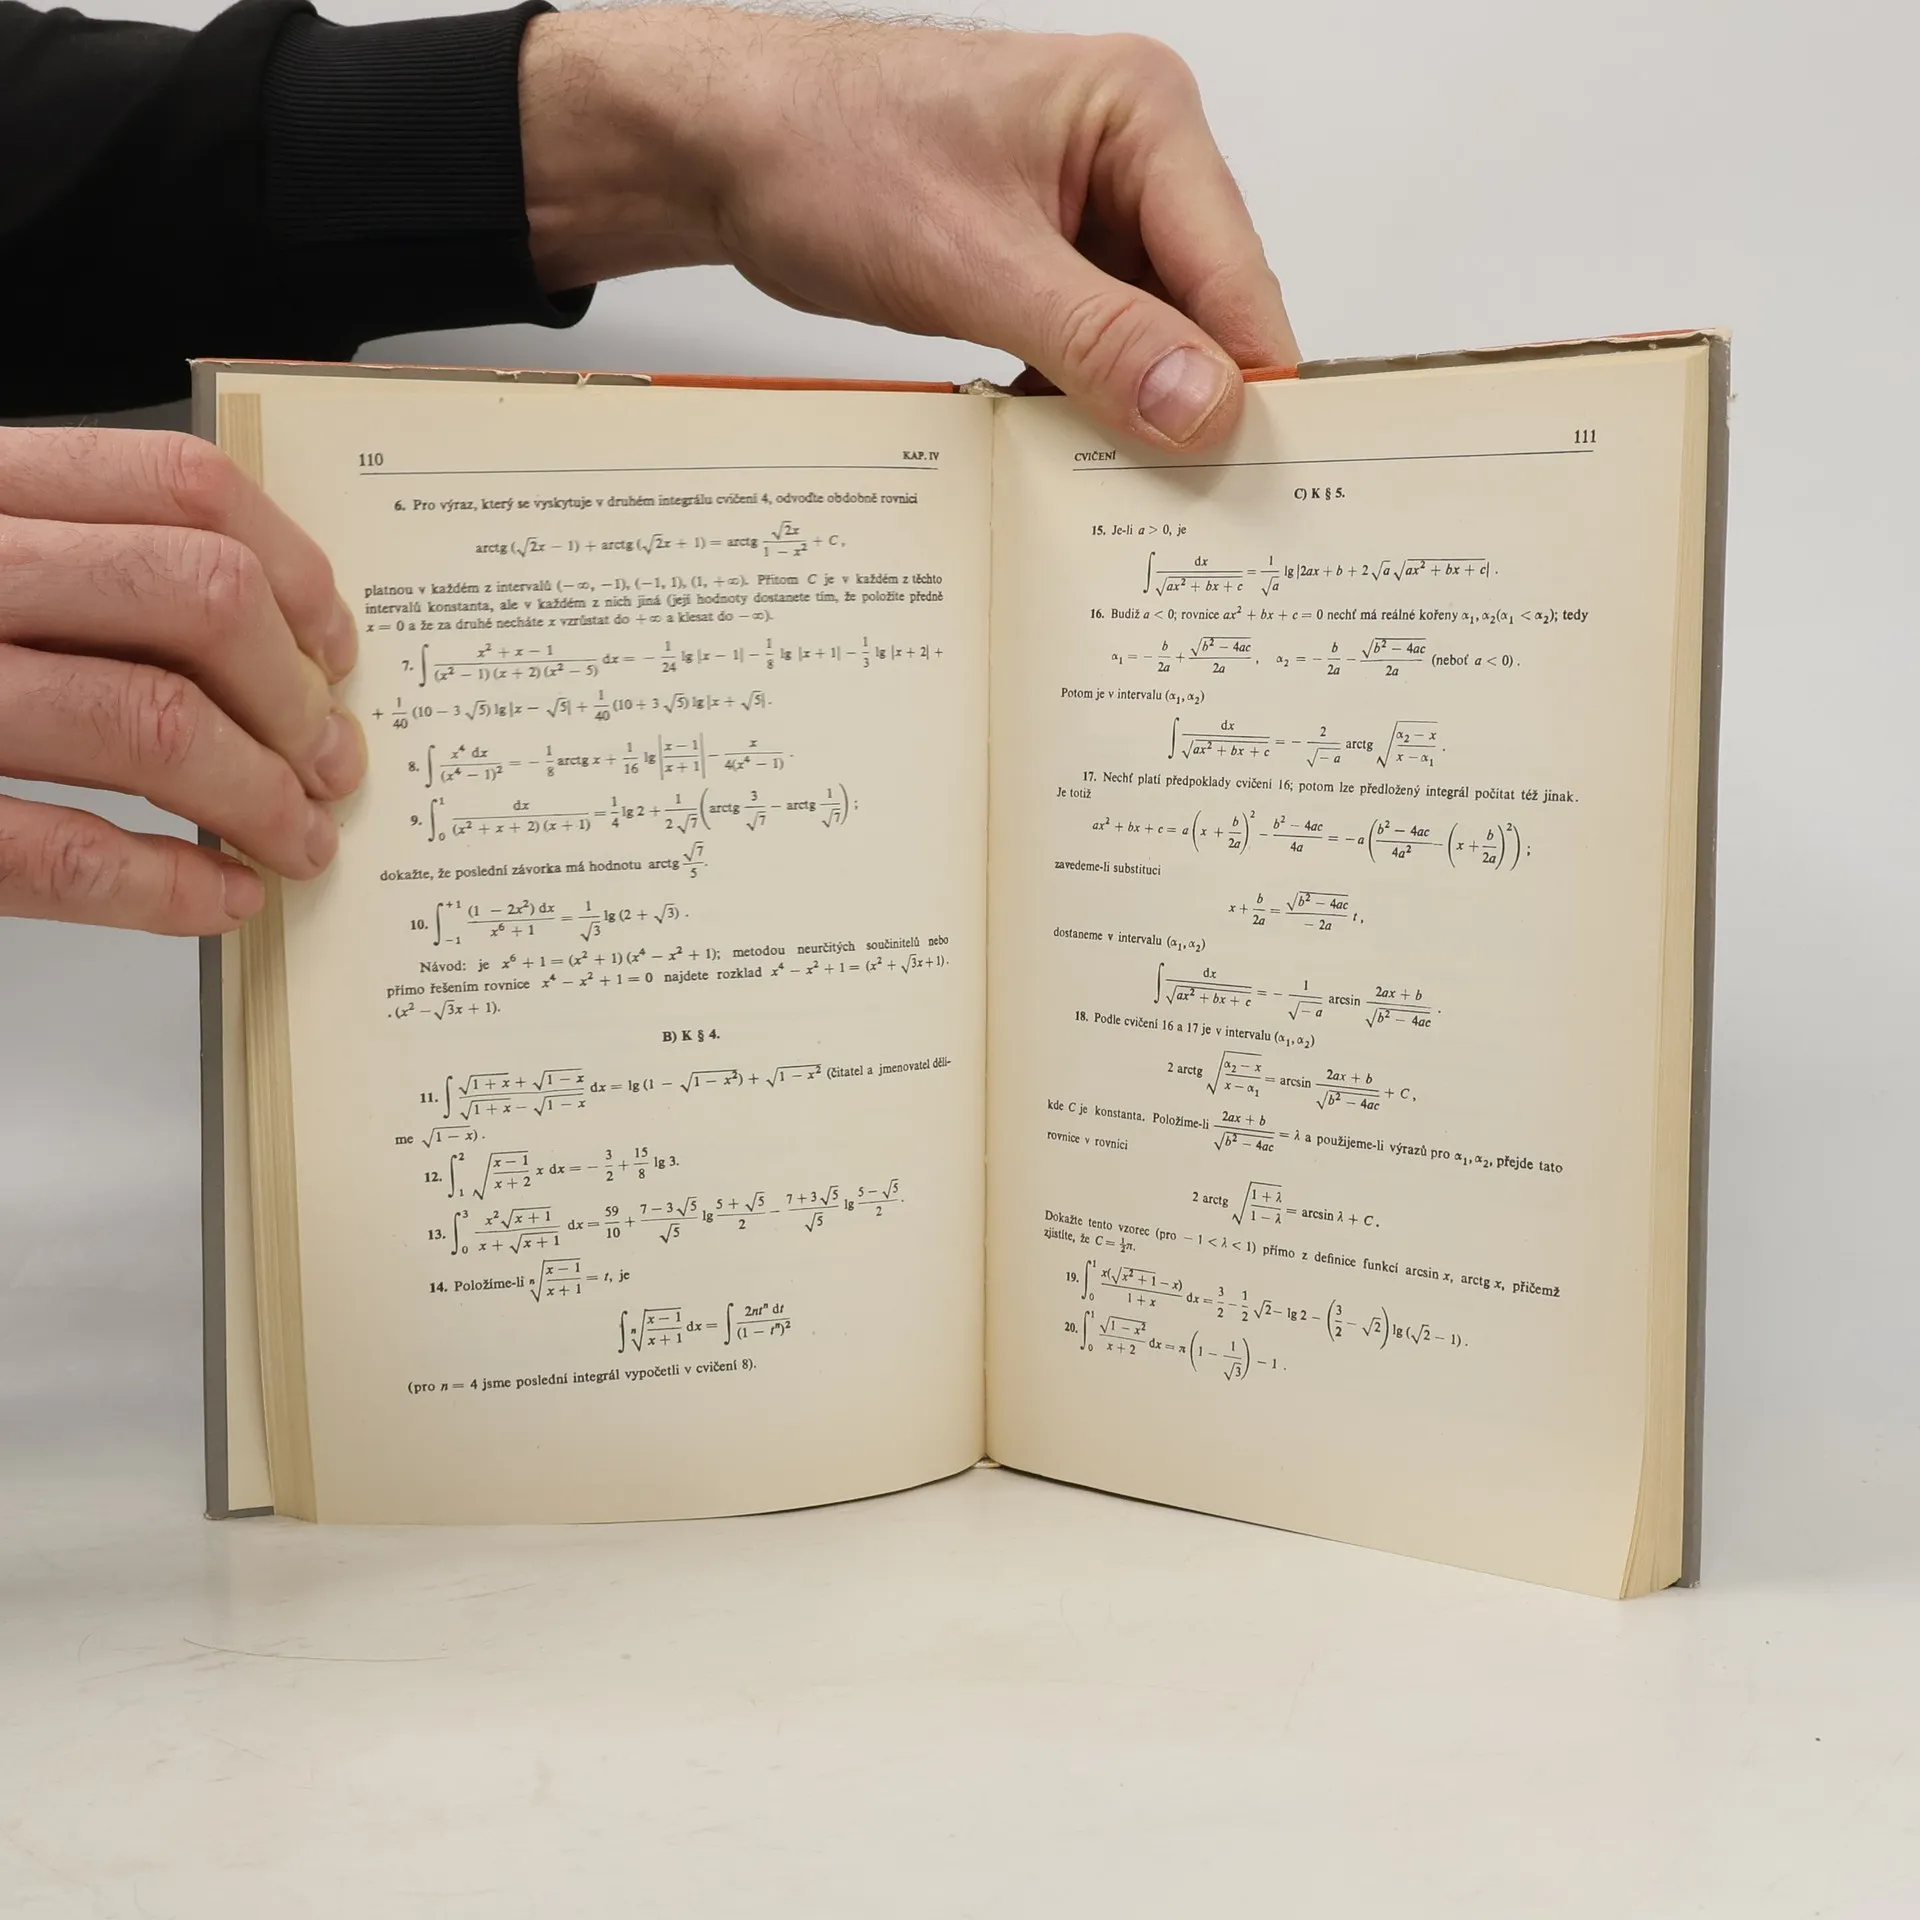 110 KAP. IV
6. Pro výraz, který se vyskytuje v druhém integrálu cvičení 4, odvoďte obdobně rovnici
arctg (√2x − 1) + arctg (√2x + 1) = arctg √2x / (1 − x²) + C,
platnou v každém z intervalů (−∞, −1), (−1, 1), (1, +∞). Přitom C je v každém z těchto
intervalů konstanta, ale v každém z nich jiná (její hodnoty dostanete tím, že položíte předně
x = 0 a že za druhé necháte x vzrůstat do +∞ a klesat do −∞).
7. ∫ (x² + x − 1) / ((x² − 1)(x + 2)(x² − 5)) dx = − 1/24 lg |x − 1| − 1/8 lg |x + 1| − 1/3 lg |x + 2| +
+ 1/40 (10 − 3√5) lg |x − √5| + 1/40 (10 + 3√5) lg |x + √5|.
8. ∫ x⁴ dx / (x⁴ − 1)² = − 1/8 arctg x + 1/16 lg |(x − 1)/(x + 1)| − x / (4(x⁴ − 1)).
9. ∫₀¹ dx / ((x² + x + 2)(x + 1)) = 1/4 lg 2 + 1/(2√7) (arctg 3/√7 − arctg 1/√7);
dokažte, že poslední závorka má hodnotu arctg √7/5.
10. ∫₋₁⁺¹ (1 − 2x²) dx / (x⁶ + 1) = 1/√3 lg (2 + √3).
Návod: je x⁶ + 1 = (x² + 1)(x⁴ − x² + 1); metodou neurčitých součinitelů nebo
přímo řešením rovnice x⁴ − x² + 1 = 0 najdete rozklad x⁴ − x² + 1 = (x² + √3x + 1).
. (x² − √3x + 1).
B) K § 4.
11. ∫ (√(1 + x) + √(1 − x)) / (√(1 + x) − √(1 − x)) dx = lg (1 − √(1 − x²)) + √(1 − x²) (čitatel a jmenovatel dělí-
me √(1 − x)).
12. ∫₁² √((x − 1)/(x + 2)) x dx = − 3/2 + 15/8 lg 3.
13. ∫₀³ x²√(x + 1) / (x + √(x + 1)) dx = 59/10 + (7 − 3√5)/√5 lg (5 + √5)/2 − (7 + 3√5)/√5 lg (5 − √5)/2.
14. Položíme-li ⁿ√((x − 1)/(x + 1)) = t, je
∫ ⁿ√((x − 1)/(x + 1)) dx = ∫ 2ntⁿ dt / (1 − tⁿ)²
(pro n = 4 jsme poslední integrál vypočetli v cvičení 8).
CVIČENÍ 111
C) K § 5.
15. Je-li a > 0, je
∫ dx / √(ax² + bx + c) = 1/√a lg |2ax + b + 2√a √(ax² + bx + c)|.
16. Budiž a < 0; rovnice ax² + bx + c = 0 nechť má reálné kořeny α₁, α₂ (α₁ < α₂); tedy
α₁ = − b/2a + √(b² − 4ac)/2a, α₂ = − b/2a − √(b² − 4ac)/2a (neboť a < 0).
Potom je v intervalu (α₁, α₂)
∫ dx / √(ax² + bx + c) = − 2/√−a arctg √((α₂ − x)/(x − α₁)).
17. Nechť platí předpoklady cvičení 16; potom lze předložený integrál počítat též jinak.
Je totiž
ax² + bx + c = a (x + b/2a)² − (b² − 4ac)/4a = −a ((b² − 4ac)/4a² − (x + b/2a)²);
zavedeme-li substituci
x + b/2a = √(b² − 4ac)/−2a t,
dostaneme v intervalu (α₁, α₂)
∫ dx / √(ax² + bx + c) = − 1/√−a arcsin (2ax + b)/√(b² − 4ac).
18. Podle cvičení 16 a 17 je v intervalu (α₁, α₂)
2 arctg √((α₂ − x)/(x − α₁)) = arcsin (2ax + b)/√(b² − 4ac) + C,
kde C je konstanta. Položíme-li (2ax + b)/√(b² − 4ac) = λ a použijeme-li výrazů pro α₁, α₂, přejde tato
rovnice v rovnici
2 arctg √((1 + λ)/(1 − λ)) = arcsin λ + C.
Dokažte tento vzorec (pro −1 < λ < 1) přímo z definice funkcí arcsin x, arctg x, přičemž
zjistíte, že C = ½π.
19. ∫₀¹ x(√(x² + 1) − x) / (1 + x) dx = 3/2 − 1/2 √2 − lg 2 − (3/2 − √2) lg (√2 − 1).
20. ∫₀¹ √(1 − x²) / (x + 2) dx = π (1 − 1/√3) − 1.